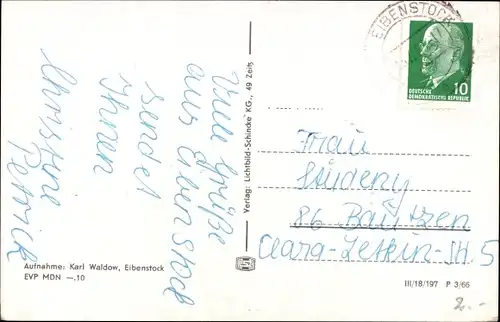 Viele Grüße
aus Eibenstock
sendet
Ihnen
Christine
Petrick
Aufnahme: Karl Waldow, Eibenstock
EVP MDN —.10
Verlag: Lichtbild-Schincke KG., 49 Zeitz
EIBENSTOCK
10
DEUTSCHE
DEMOKRATISCHE REPUBLIK
Frau
86 Bautzen
Clara-Zetkin-Str. 5
III/18/197 P 3/66
2.-